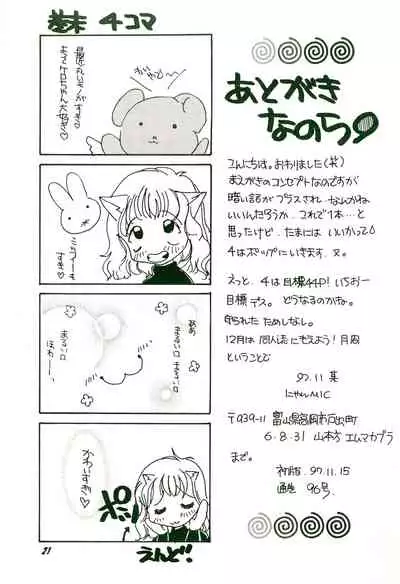 巻末 4コマ
最近丸いモノがすき♡
よってケロちゃん大好き♡
こっちもすき♡
ああ
まるい□
まるい□
ほわー
かわいすぎ♡
ポッ
えんど!
21
あとがき
なのら
こんにちは。おわりました(笑)
まえがきのコンセプトなのですが
暗い話がプラスされ…なんかね
いいんだろうか、これで1本…と
思ったけど、たまにはいいかって
4はポップにいきます。又。
えっと、4は目標44P! いちおー
目標デス。どうなるのかな。
守られたためしなし。
12月は同人誌にもえよう!月間
ということで
97.11 某
にゃんMIC
〒939-11 富山県高岡市戸出町
6.8.31 山本方 エムマカブラ
まで。
初版 97.11.15
通巻 96号